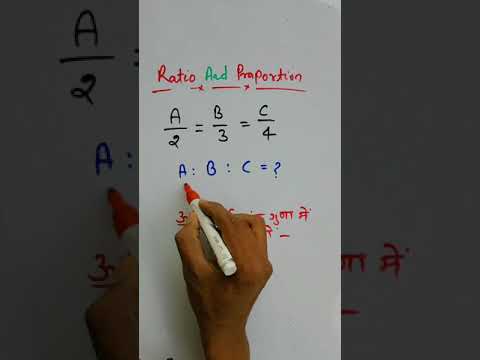 Ratio And Proportion
A/2 = B/3 = C/4
A : B : C = ?
गुणा में